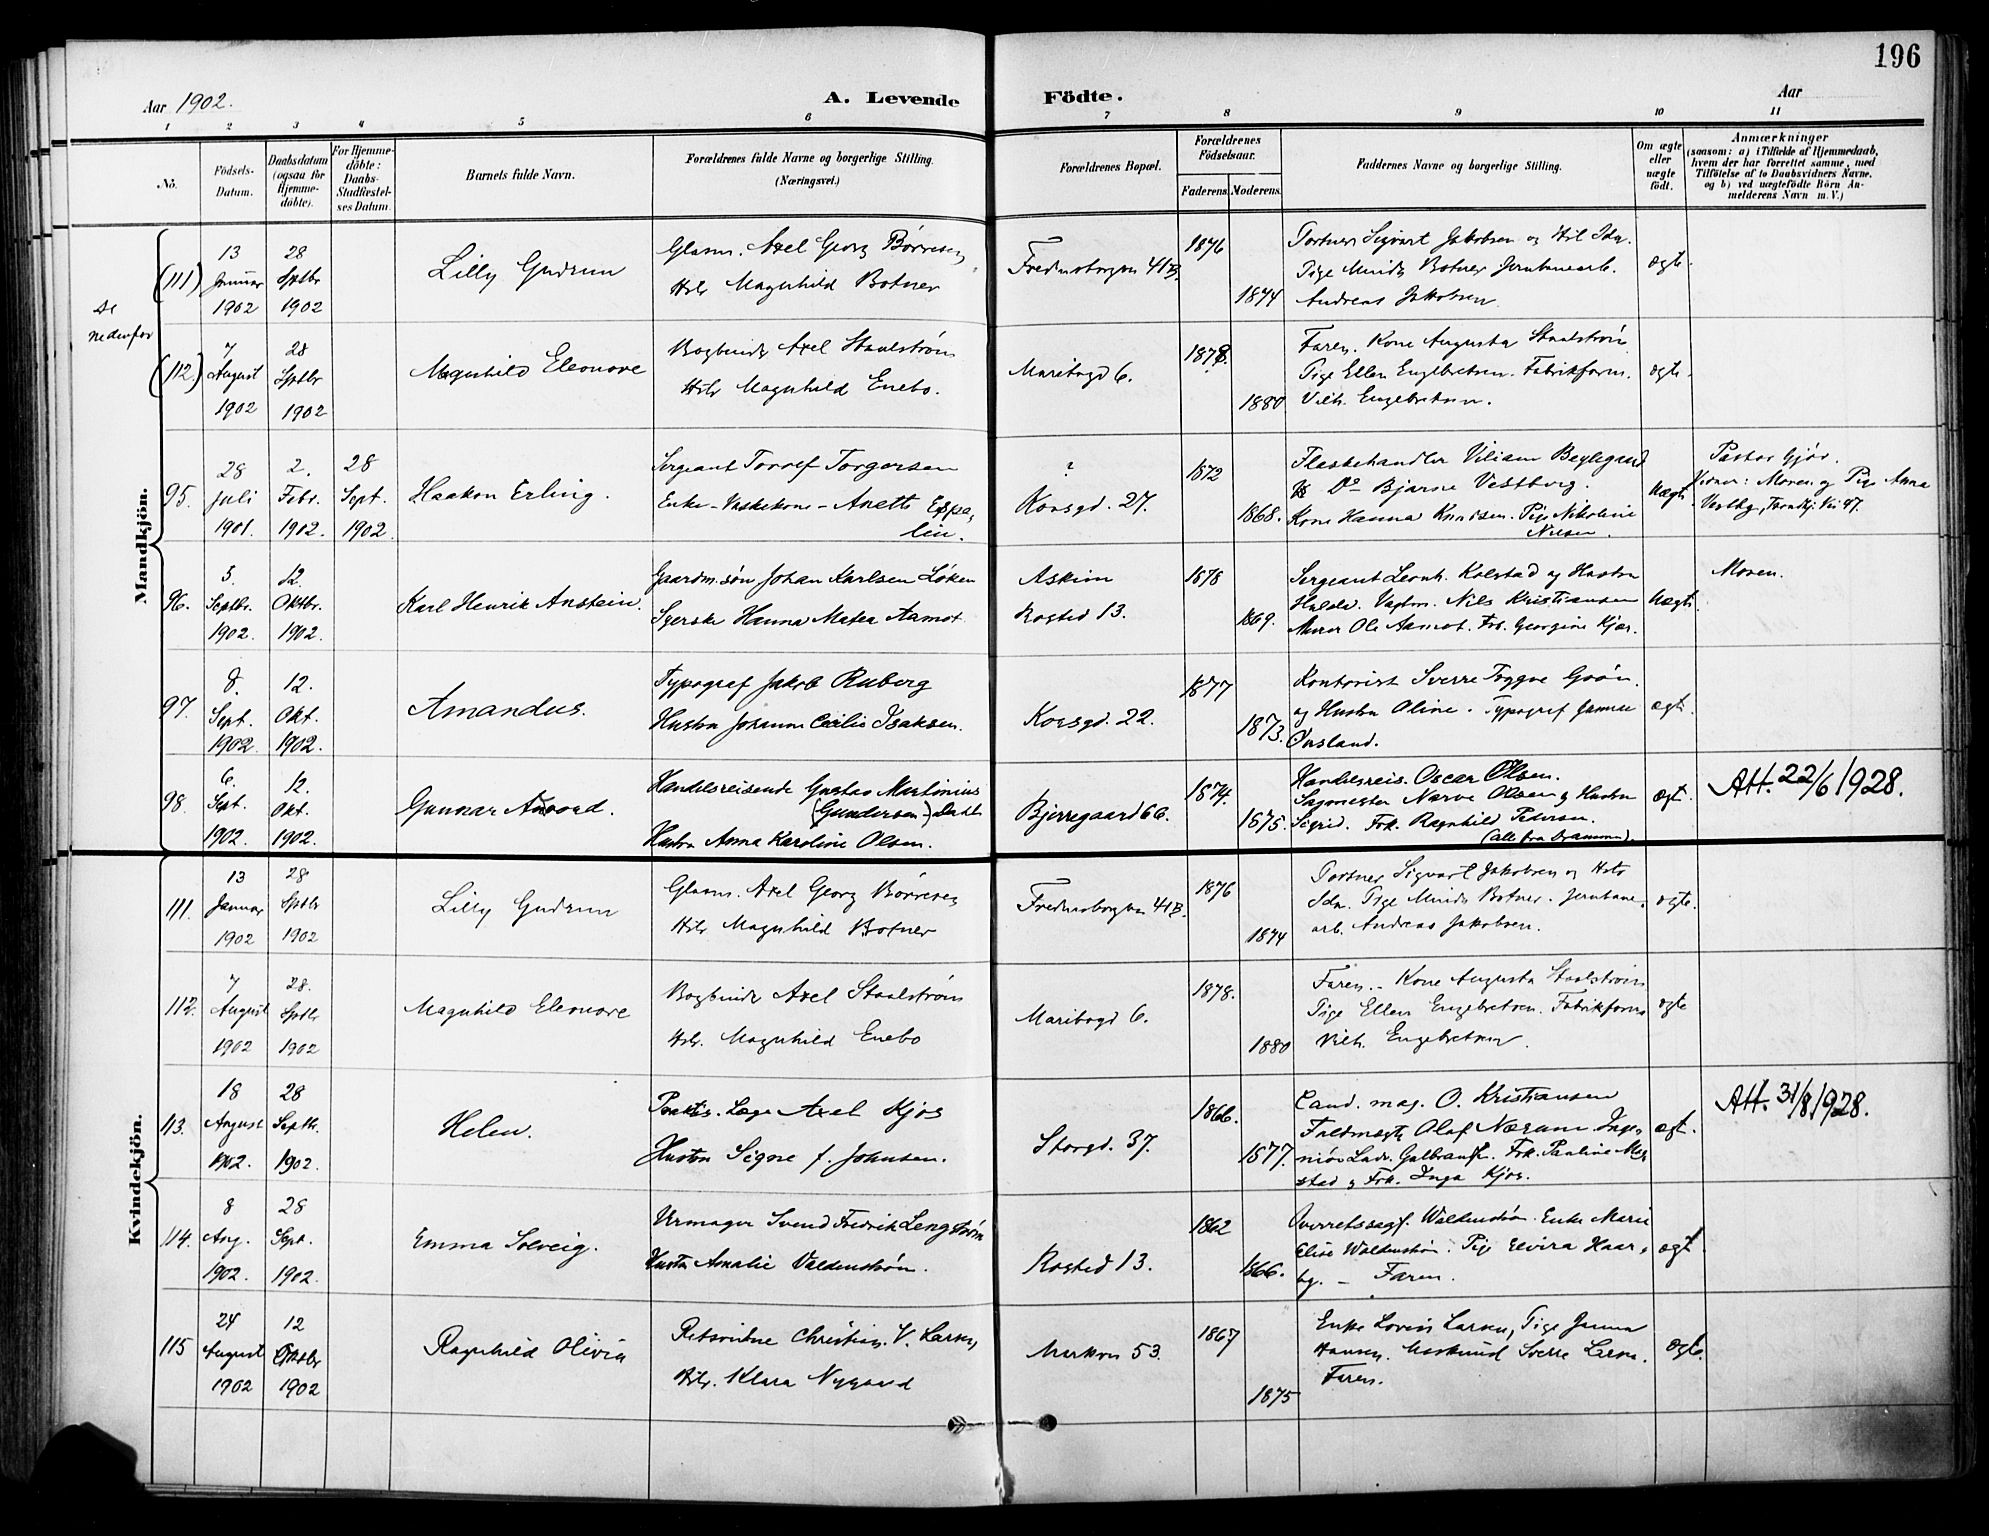 196
Aar 1902.
A. Levende Födte.
Aar
1 2 3 4 5 6 7 8 9 10 11
No.
Födsels-Datum.
Daabsdatum (ogsaa for Hjemmedöbte).
For Hjemmedöbte: Daabs-Stadfæstelses Datum.
Barnets fulde Navn.
Forældrenes fulde Navne og borgerlige Stilling. (Næringsvei.)
Forældrenes Bopæl.
Forældrenes Födselsaar.
Faderens. Moderens.
Faddernes Navne og borgerlige Stilling.
Om ægte eller uægte födt.
Anmærkninger
(saasom: a) i Tilfælde af Hjemmedaab, hvem der har forrettet samme, med Tilföielse af to Daabsvidners Navne, og b) ved uægtefödte Börn Anmelderens Navn m. V.)
Mandkjön.
se nedenfor
(111) 13 Januar 1902
28 Sptbr 1902
Lilly Gudrun
Glasm. Axel Georg Børresen
Hstr Magnhild Botner
Fredensborgvn 41B.
1876
1874
Portner Sigvart Jakobsen og Hst Ida.
Pige Minda Botner. Jernbanearb.
Andreas Jakobsen.
ægte.
(112.) 7 August 1902
28 Sptbr 1902
Magnhild Eleonore
Bogbinder Axel Staalstrøm
Hstr Magnhild Enebo.
Maribogd 6.
1878.
1880
Faren. Kone Augusta Staalstrøm
Pige Ellen Engebretsen. Fabrikform.
Vilh. Engebretsen.
ægte.
95. 28 Juli 1901.
2. Febr. 1902.
28 Sept. 1902.
Haakon Erling.
Sergeant Toralf Torgersen
Enke-Vaskekone-Anette Eppelin.
?
Korsgd. 27.
1872
1868.
Flaskehandler Viliam Beylegaard
Do Bjarne Vestberg.
Kone Hanna Knudsen. Pige Nikoline
Nilsen.
Uægte
Pastor Gjør.
Vidner: Moren og Pige Anna
96. 5. Septbr. 1902.
12. Oktbr. 1902.
Karl Henrik Anstein.
Gaardm. søn Johan Karlsen Løken
Syerske Hanna Matea Aamot.
Askim
Rosted 13.
1878
1869.
Sergeant Leonh. Kolstad og Hustru
Hulda. Vagtm. Nils Kristiansen
Murer Ole Aamot. Frk. Georgine Kjær.
Uægte
Moren.
97. 8. Sept. 1902.
12. Okt. 1902.
Amandus.
Typograf Jakob Ruberg
Hustru Johanne Cecilie Isaksen.
Korsgd. 22.
1877
1873.
Kontorist Sverre Trygve Grøn.
og Hustru Oline. Typograf
ægte.
98. 6. Sept. 1902.
12. Okt. 1902.
Gunnar
Handelsreisende Gustav Martinius
(Gundersen)
Hustru Anna Karoline Olsen.
Bjerregaard 66.
1874.
1875.
Handelsreis. Oscar Olsen.
Sagmester Narve Olsen og Hustru
Sigrid. Frk. Ragnhild Petersen.
(alle fra Drammen).
ægt.
Att. 22/6 1928.
Kvindekjön.
111. 13 Januar 1902
28 Sptbr 1902
Lilly Gudrun
Glasm. Axel Georg Børresen
Hstr Magnhild Botner
Fredensborgvn 41B.
1876
1874
Portner Sigvart Jakobsen og Hstr
Ida. Pige Minda Botner. Jernbane-
arb. Andreas Jakobsen.
ægte.
112. 7 August 1902
28. Sptbr 1902
Magnhild Eleonore
Bogbinder Axel Staalstrøm
Hstr. Magnhild Enebo
Maribogd 6.
1878.
1880
Faren. - Kone Augusta Staalstrøm
Pige Ellen Engebretsen. Fabrikform
Vilh. Engebretsen.
ægte
113. 18 August 1902.
28 Septbr. 1902.
Helen.
Praktis. Læge Axel Kjos
Hustru Signe f. Johnsen.
Storgd. 37.
1866.
1877.
Cand. mag. O. Kristiansen
Fuldmægtig Olaf Nærum. Inge-
niør Ludv. Frk. Pauline
og Frk. Inga Kjos.
ægt.
Att. 31/8 1928.
114. 8 Aug. 1902.
28 Sept. 1902.
Emma Solveig.
Urmager Svend Fredrik Lengstrøm
Hustru Amalie Valdenstrøm.
Rosted 13.
1862
1866.
Overretssagf. Waldenstrøm. Enke Marie
Elise Waldenstrøm. Pige Elvira Haar-
bg. - Faren.
ægt
115 24 August 1902
12 Oktobr 1902
Ragnhild Olivia
Retsvidne Christian. V. Larsen
Hstr. Klara Nygaard
Markvn 53.
1867
1875
Enke Lovise Larsen, Pige Janna
Hansen. Maskinist Sverre Larsen.
Faren.
ægte.